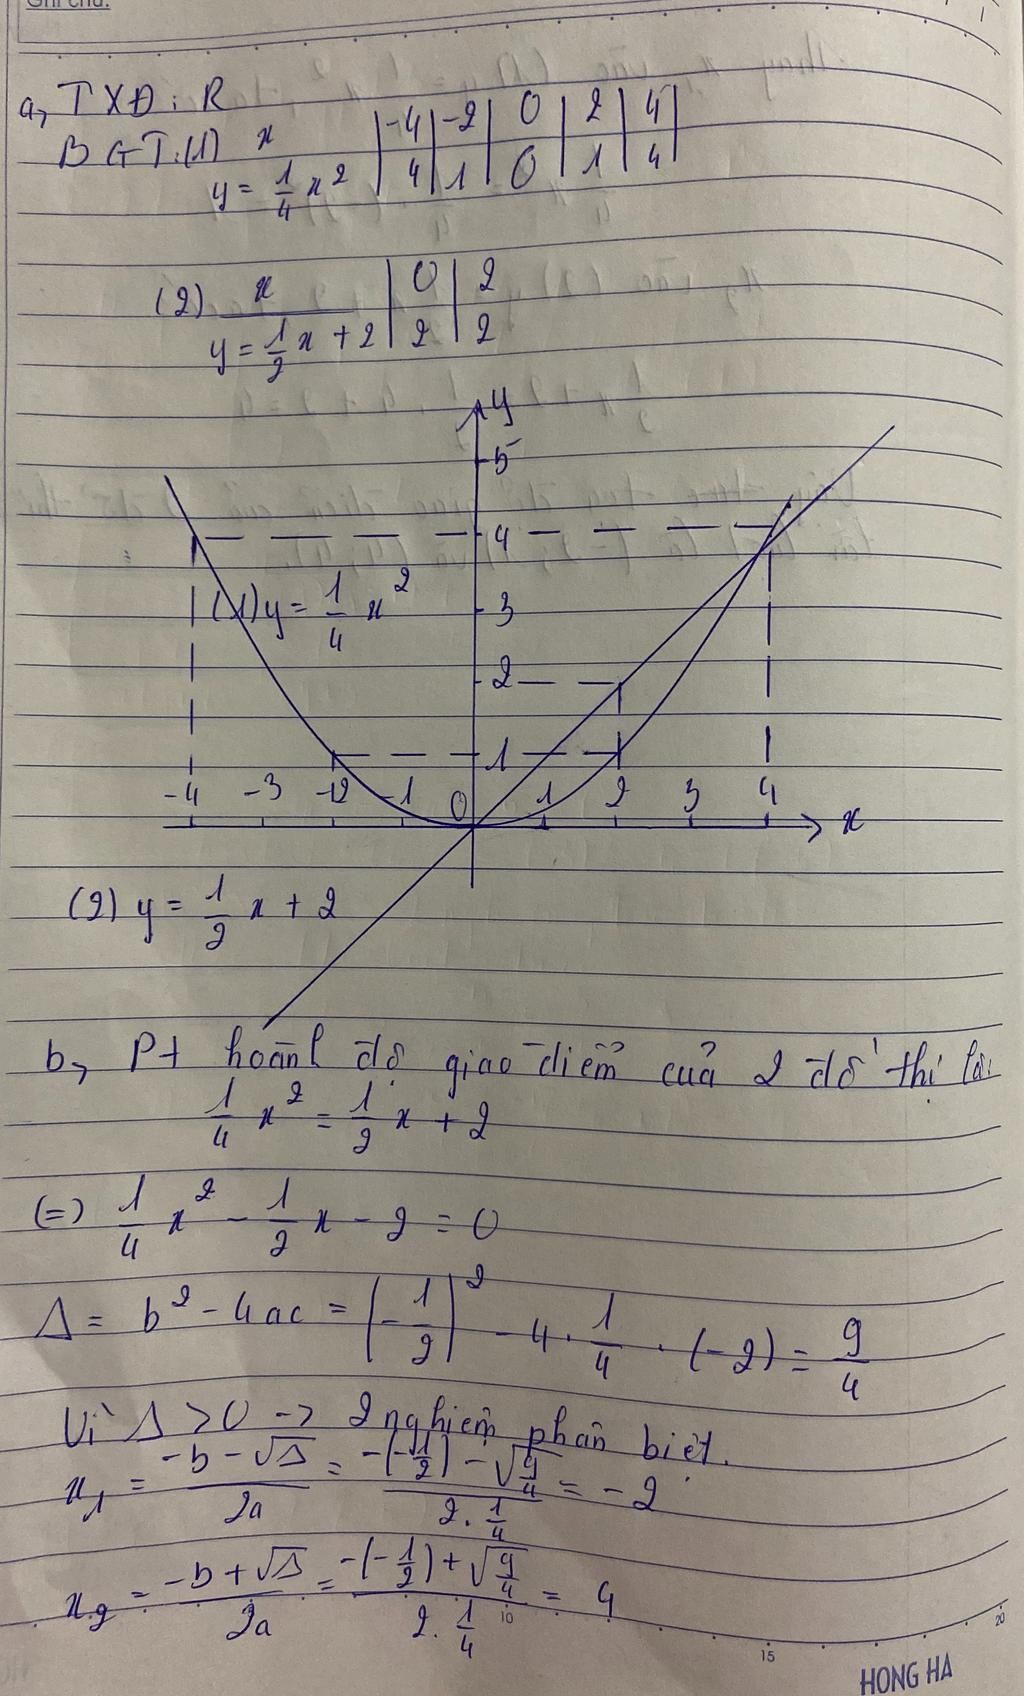 Ghi chú:
a, TXĐ: R
BGT: (1) x | -4 | -2 | 0 | 2 | 4 |
y = 1/4 x² | 4 | 1 | 0 | 1 | 4
(2) x | 0 | 2
y = 1/2 x + 2 | 2 | 2
y
5
4
(1) y = 1/4 x²
3
2
1
-4 -3 -2 -1 0 1 2 3 4 x
(2) y = 1/2 x + 2
b, Pt hoành độ giao điểm của 2 đồ thị là:
1/4 x² = 1/2 x + 2
(=) 1/4 x² - 1/2 x - 2 = 0
Δ = b² - 4ac = (-1/2)² - 4 . 1/4 . (-2) = 9/4
Vì Δ > 0 -> 2 nghiệm phân biệt.
x₁ = (-b - √Δ)/2a = (-(-1/2) - √(9/4))/(2 . 1/4) = -2
x₂ = (-b + √Δ)/2a = (-(-1/2) + √(9/4))/(2 . 1/4) = 4
10 15 20
HONG HA